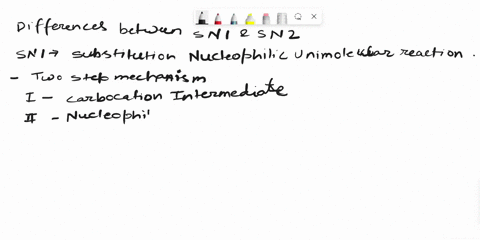 Differences between SN1 & SN2
SN1 → Substitution Nucleophilic Unimolecular reaction.
- Two step mechanism
I - Carbocation Intermediate
II - Nucleophil